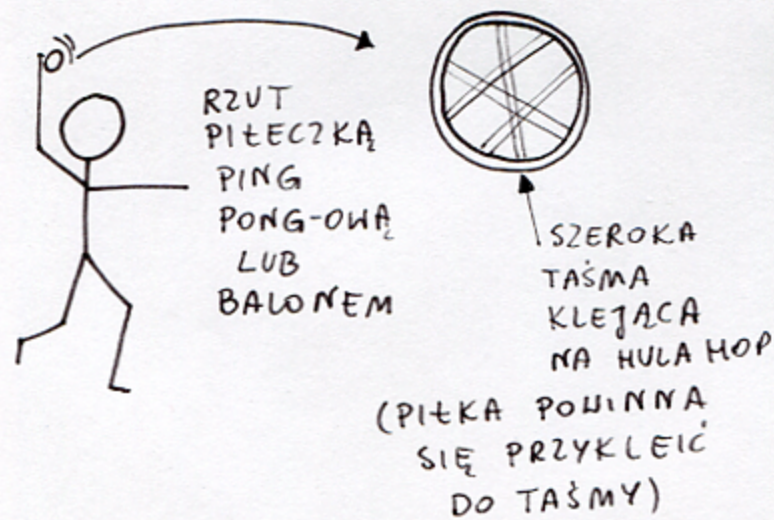 RZUT
PIŁECZKĄ
PING
PONG-OWĄ
LUB
BALONEM
SZEROKA
TAŚMA
KLEJĄCA
NA HULA HOP
(PIŁKA POWINNA
SIĘ PRZYKLEIĆ
DO TAŚMY)